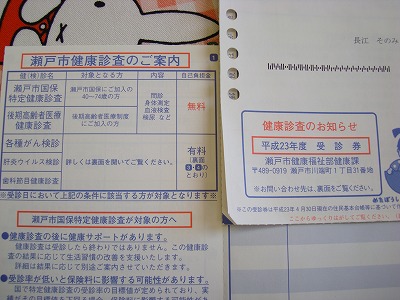 瀬戸市健康診査のご案内
1
健(検)診名 対象となる方 内容 自己負担金
瀬戸市国保
特定健康診査
瀬戸市国保にご加入の
40〜74歳の方
問診
身体測定
血液検査
検尿 など
無料
後期高齢者医療
健康診査
後期高齢者医療制度
にご加入の方
各種がん検診
肝炎ウイルス検診
歯科節目健康診査
詳しくは裏面を開いてご覧ください。
有料
(裏面
とおり)
※受診日において上記の条件に該当する方が対象となります。
瀬戸市国保特定健康診査が対象の方へ
●健康診査の後に健康サポートがあります。
健康診査は受診したら終わりではありません。この健康診
査の結果に応じて生活習慣の改善を支援いたします。
詳細は結果に応じて別途ご案内させていただきます。
●受診率が低いと保険料に影響する可能性があります。
国で特定健康診査の受診率の目標値が定められており、実
長江 そのみ
健康診査のお知らせ
平成23年度 受診券
瀬戸市健康福祉部健康課
〒489-0919 瀬戸市川端町1丁目31番地
※お問い合わせ先は、裏面をご覧ください。